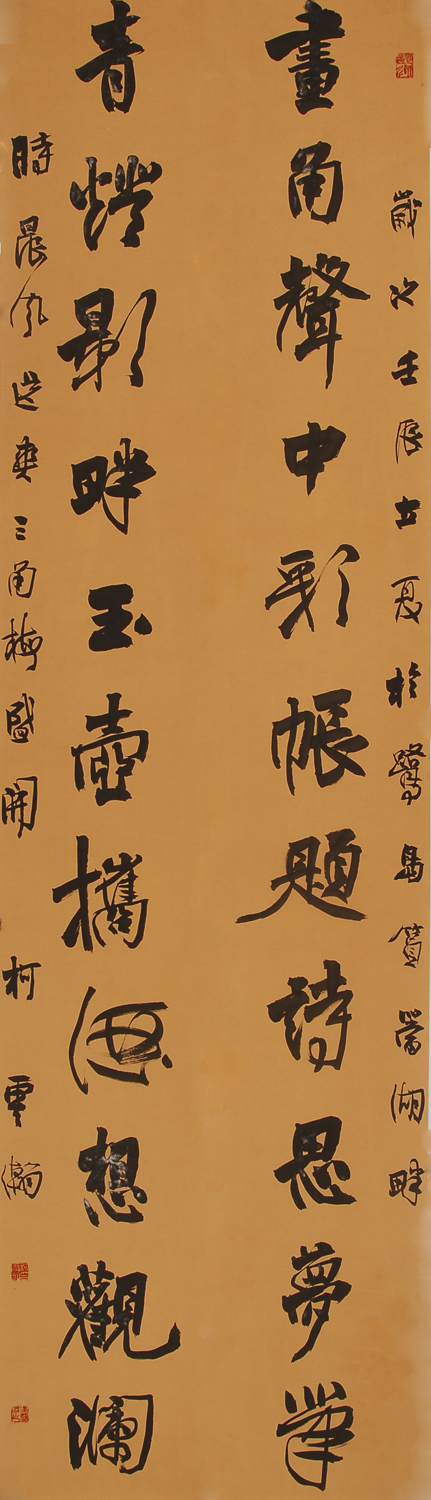 歲次壬辰立夏於鷺島篔簹湖畔
畫角聲中彩帳題詩思夢筆
青燈影畔玉壺攜酒想觀瀾
時晨風送爽三角梅盛開 柯雲瀚